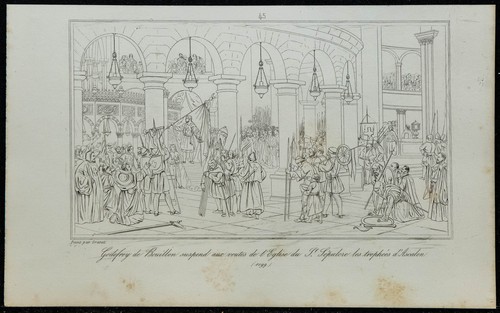 43
peint par Granet
Godefroy de Bouillon suspend aux voutes de l'Eglise du St. Sépulcre les trophées d'Ascalon
(1099)